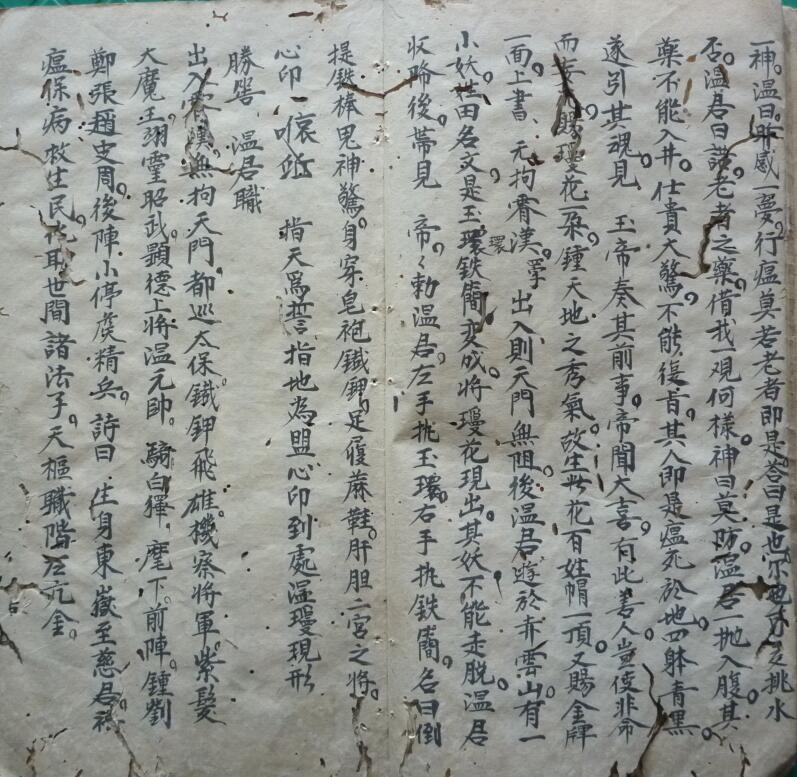 一神。温曰。昨感一夢。行瘟莫若老者即是。答曰是也。挑水
否。温君曰。諾。老者之藥。借我一观何樣。神曰莫防。温君一抛入腹。其
藥不能入井。仕貴大驚。不能復旨。其人即是瘟死於地。四躰青黑。
遂引其魂見 玉帝奏其前事。帝聞大喜。有此善人。豈使非命
而 賜瓊花一朶。鍾天地之秀氣。故生此花。百姓帽一頂。又賜金牌
一面。上書、元拘霄漢。 出入則天門無阻。後温君遊於赤雲山。有一
小妖。世田名文。是玉環鉄簡变成。将瓊花現出。其妖不能走脱。温君
収降後。帶見 帝。々勅温君。左手执玉環。右手执鉄簡。名曰倒
提鉄棒鬼神驚。身穿皂袍鐵鉀。足履蔴鞋。肝胆二宮之将。
心印 指天爲誓指地為盟心印到處温瓊現形
勝 温君職
出入霄漢無拘天門。都巡太保。鐵鉀飛雄。機察将軍。紫髮
大魔。王翊靈昭武。顕德上将温元帥。騎白獬。麾下前陣。鍾劉
鄭張趙史周。後陣小停矦精兵。詩曰 生身東嶽至慈君。祛
瘟保病救生民。世間諸法子。天樞職階左亢金。